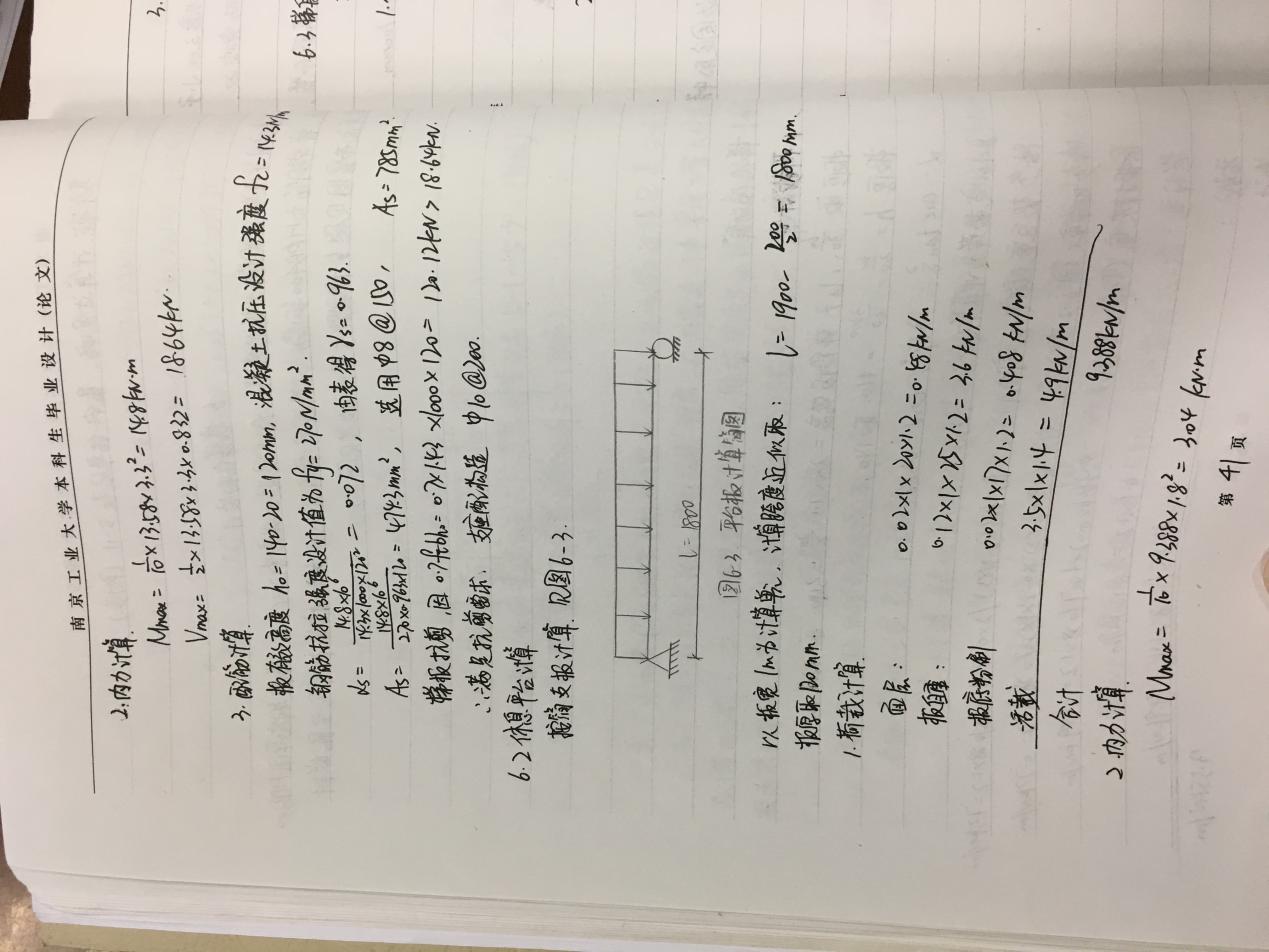 南京工业大学本科生毕业设计(论文)
2.内力计算.
Mmax = 1/10 × 13.58 × 3.3² = 14.8kN·m
Vmax = 1/2 × 13.58 × 3.3 × 0.832 = 18.64kN.
3. 配筋计算.
板有效高度 h₀ = 140-20 = 120mm, 混凝土抗压设计强度 fc = 14.3N/
钢筋抗拉强度设计值为 fy = 270N/mm².
αs = 14.8×10⁶/14.3×1000×120² = 0.072, 由表得 γs = 0.963.
As = 14.8×10⁶/270×0.963×120 = 474.3mm², 选用 φ8@150, As = 785mm².
梯板抗剪 因 0.7ftbh₀ = 0.7×1.43×1000×120 = 120.12kN > 18.64kN.
∴满足抗剪要求. 支座配构造 φ10@200.
6.2 休息平台计算
按简支板计算. 见图6-3.
l = 1800
图6-3 平台板计算简图
以板宽1m为计算单元, 计算跨度近似取: l = 1900 - 200/2 = 1800mm.
板厚取120mm.
1.荷载计算.
面层: 0.02×1×20×1.2 = 0.48kN/m
板重: 0.12×1×25×1.2 = 3.6kN/m
板底粉刷 0.02×1×17×1.2 = 0.408kN/m
活载 3.5×1×1.4 = 4.9kN/m
合计 9.388kN/m
2.内力计算.
Mmax = 1/10 × 9.388 × 1.8² = 3.04 kN·m
第 41 页
3.
6.3 梯段
1.